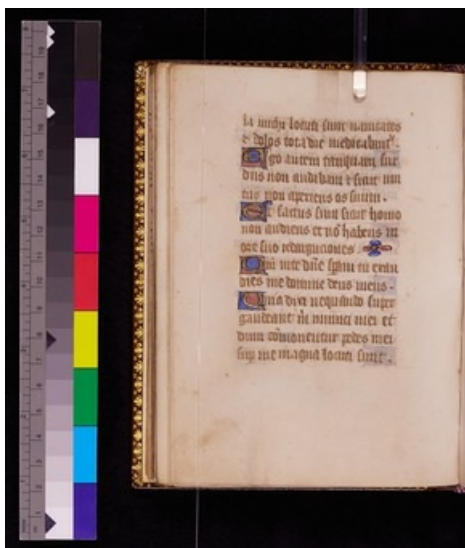 la michi locuti sunt vanitates
& dolos tota die meditabant᷑.
Ego autem tanquam sur
dus non audiebam & sicut mu
tus non aperiens os suum.
Et factus sum sicut homo
non audiens et no᷑ habens in
ore suo redargutiones
Qm̄ in te dn̄e speraui tu exau
dies me domine deus meus.
Quia dixi nequando super
gaudeant m̄ inimici mei et
dum co᷑mouentur pedes mei
sup me magna locuti sunt.